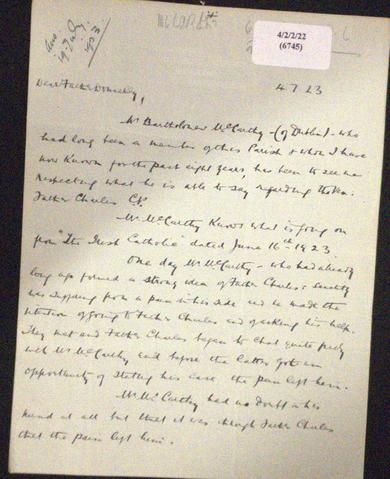 Ans
19. July
1923.
4/2/2/22
(6745)
4 7 23
Dear Father Donnelly,
Mr Bartholomew McCarthy - (of Dublin) - who
had long been a member of this Parish & whom I have
now known for the past eight years, has been to see me
respecting what he is able to say regarding the Ven.
Father Charles C.P.
Mr McCarthy knows what is going on
from "The Irish Catholic" dated June 16th 1923.
One day Mr McCarthy - who had already
long ago formed a strong idea of Father Charles's sanctity
was suffering from a pain in his side and so made the
intention of going to Father Charles and of asking his help.
They met and Father Charles began to chat quite freely
with Mr McCarthy and before the latter got an
opportunity of stating his case the pain left him.
Mr McCarthy had no doubt in his
mind at all but that it was through Father Charles
that the pain left him.